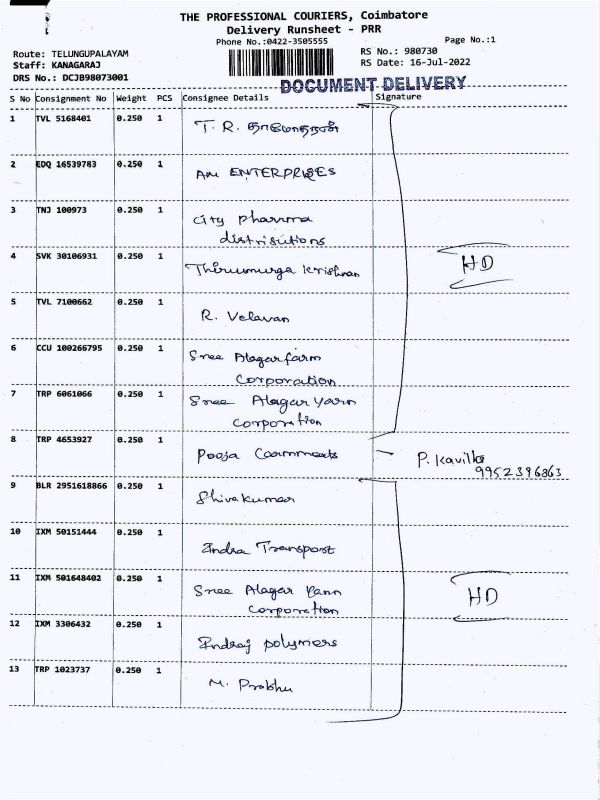 THE PROFESSIONAL COURIERS, Coimbatore
Delivery Runsheet - PRR
Phone No.:0422-3505555
Page No.:1
Route: TELUNGUPALAYAM
RS No.: 980730
Staff: KANAGARAJ
RS Date: 16-Jul-2022
DRS No.: DCJB98073001
DOCUMENT DELIVERY
S No Consignment No Weight PCS Consignee Details Signature
1 TVL 5168401 0.250 1 T. R.
2 EDQ 16539783 0.250 1 ENTERPRISES
3 TNJ 100973 0.250 1 City pharma
distributions
4 SVK 30106931 0.250 1 Thirumurga Krishnan
HD
5 TVL 7100662 0.250 1 R. Velavan
6 CCU 100266795 0.250 1 Sree Alagar farm
Corporation
7 TRP 6061066 0.250 1 Sree Alagar yarn
corporation
8 TRP 4653927 0.250 1 Pooja
P. Kavitha
9952396863
9 BLR 2951618866 0.250 1 Shivakumar
10 IXM 50151444 0.250 1 Indra Transport
11 IXM 501648402 0.250 1 Sree Alagar Yann
Corporation
HD
12 IXM 3306432 0.250 1 Indraj polymers
13 TRP 1023737 0.250 1 M. Prabhu